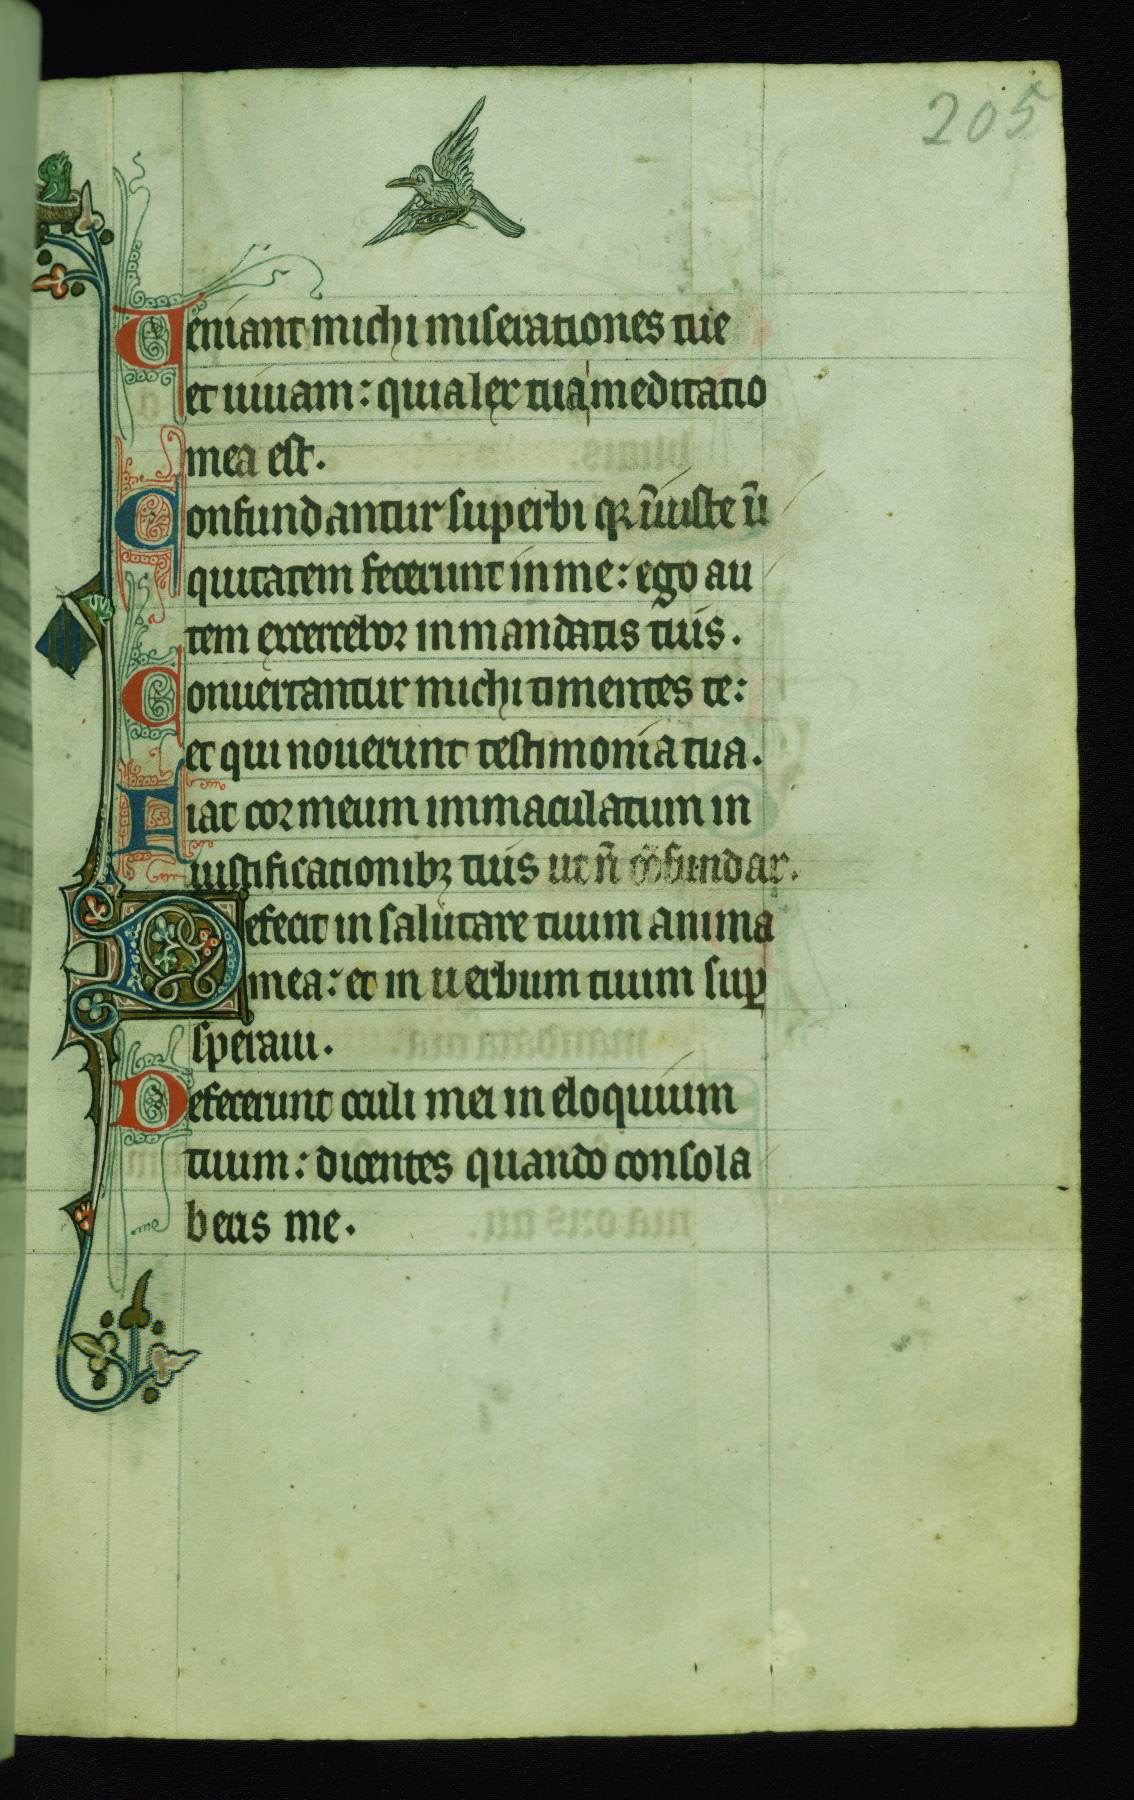 205
Ueniant michi miserationes tue
et uiuam: quia lex tua meditatio
mea est.
Confundantur superbi qꝛ iniuste ini
quitatem fecerunt in me: ego au
tem exercebor in mandatis tuis.
Conuertantur michi timentes te:
et qui nouerunt testimonia tua.
Fiat cor meum immaculatum in
iustificationibꝫ tuis ut n̄ cōfundar.
Defecit in salutare tuum anima
mea: et in uerbum tuum suꝑ
speraui.
Defecerunt oculi mei in eloquium
tuum: dicentes quando consola
beris me.